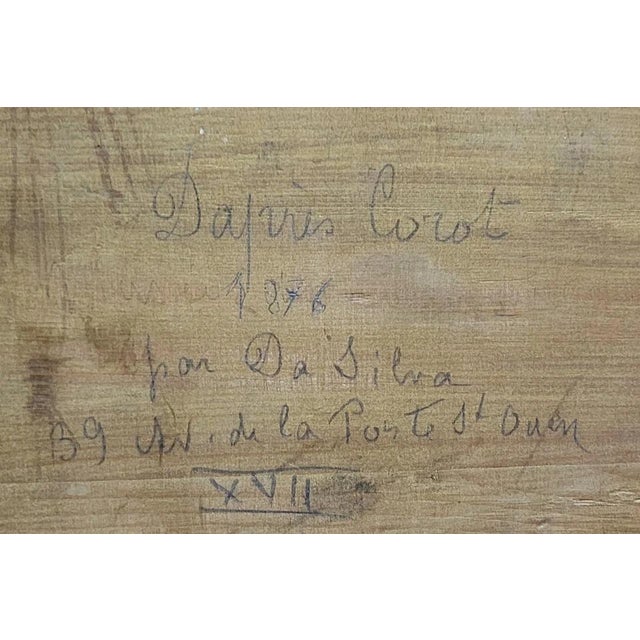 Daprès Corot
1876
par Da Silva
39 Av. de la Porte St Ouen
XVII